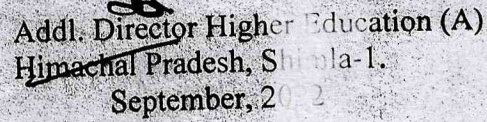 Addl. Director Higher Education (A)
Himachal Pradesh, Shimla-1.
September,